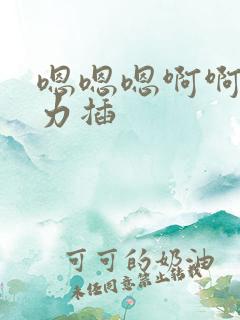 嗯嗯嗯啊啊
力插
可可的奶油
未经同意禁止转载